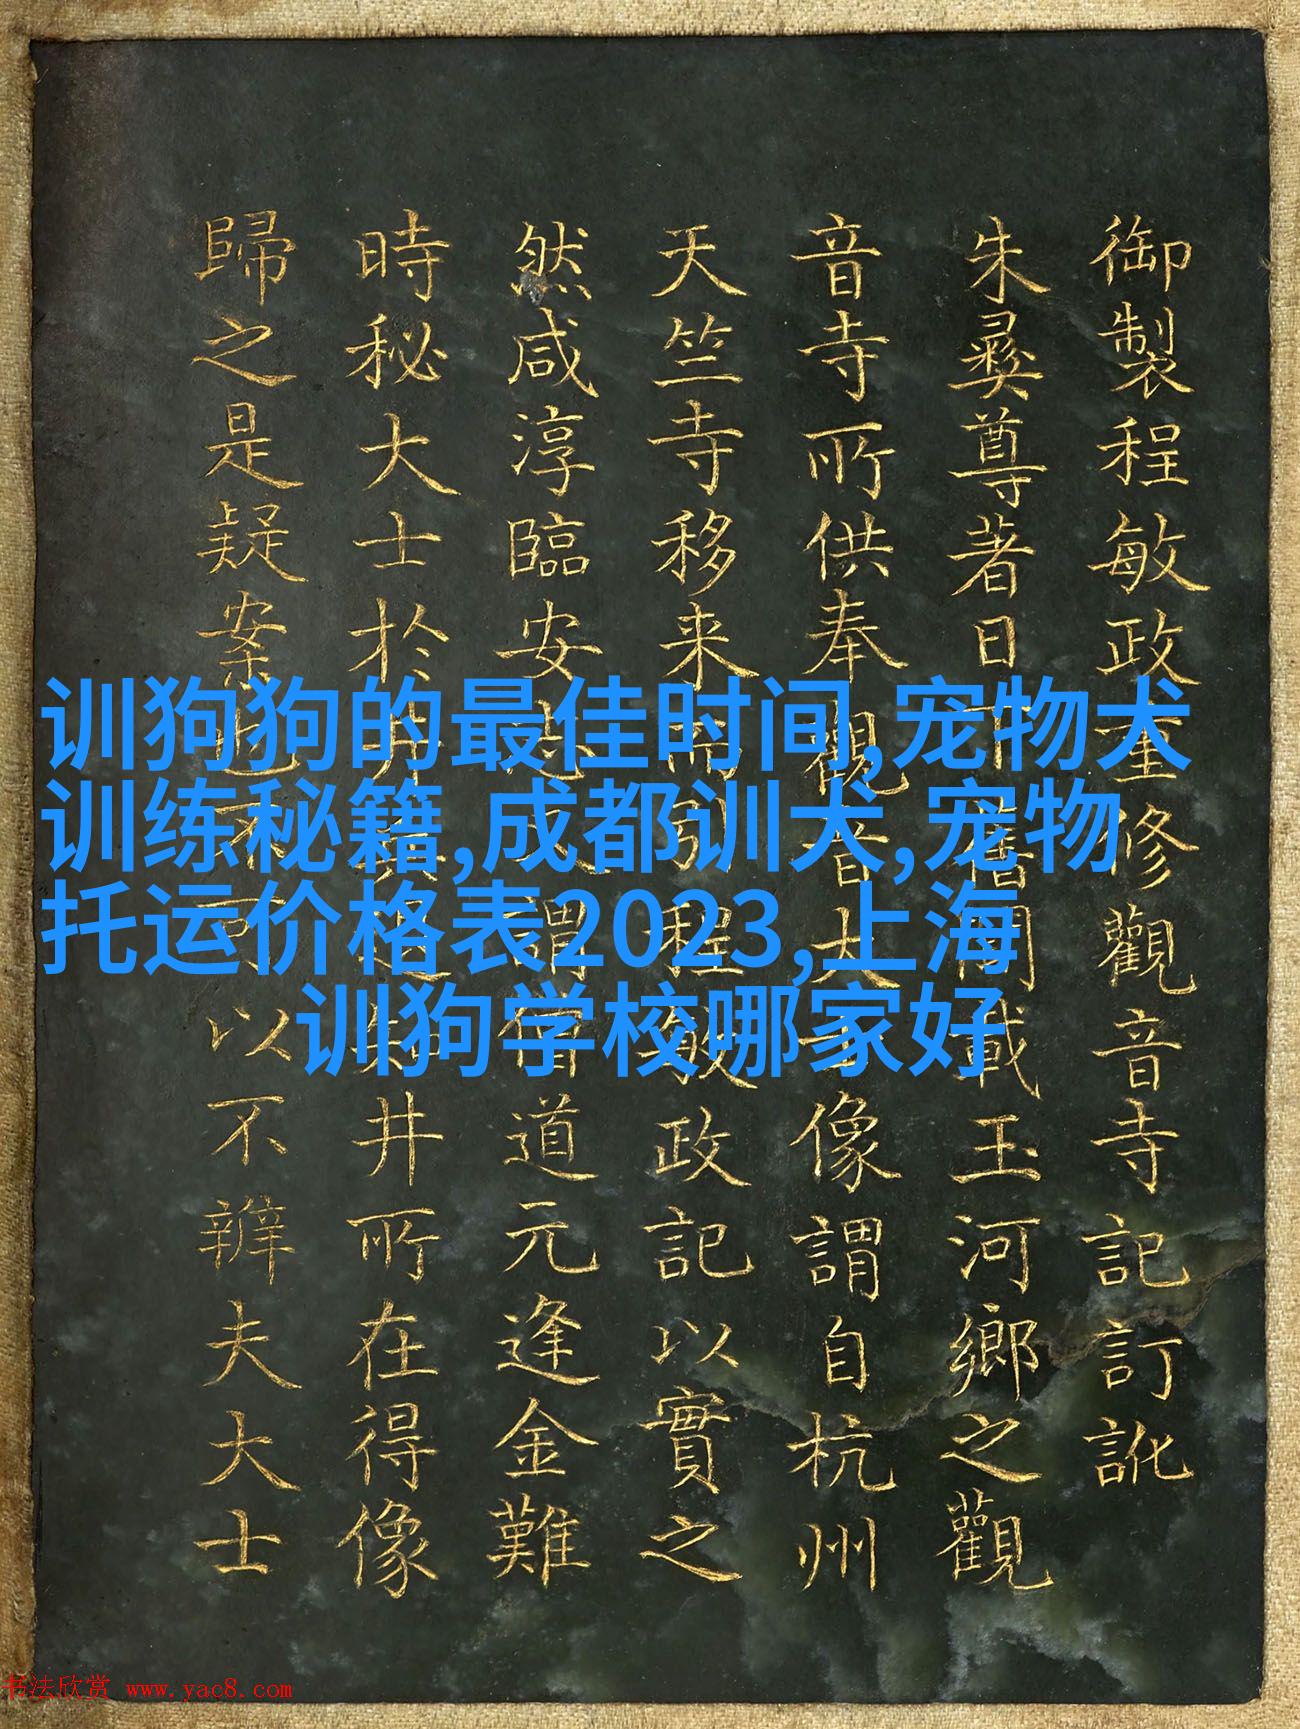 御製程敏政重修觀音寺記訂訛
朱彛尊著日下舊聞載玉河鄉之觀
音寺所供奉觀音大士像謂自杭州
天竺寺移来而引程敏政記以實之
然咸淳臨安志又謂僧道元逢金難
時秘大士於井井所在得像
歸之是疑案也不可以不辨夫大士
训狗狗的最佳时间,宠物犬
训练秘籍,成都训犬,宠物
托运价格表2023,上海
训狗学校哪家好
书法欣赏 www.yac8.com